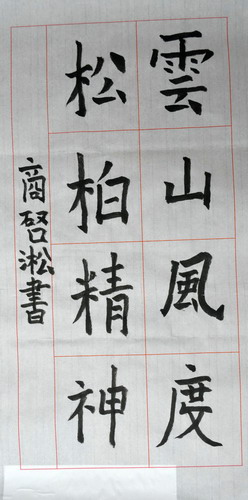 雲山風度
松柏精神
商啓淞書